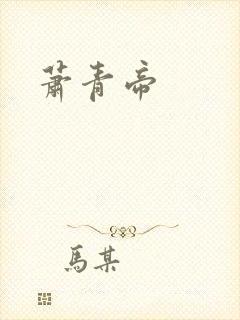 蕭青帝
馬某